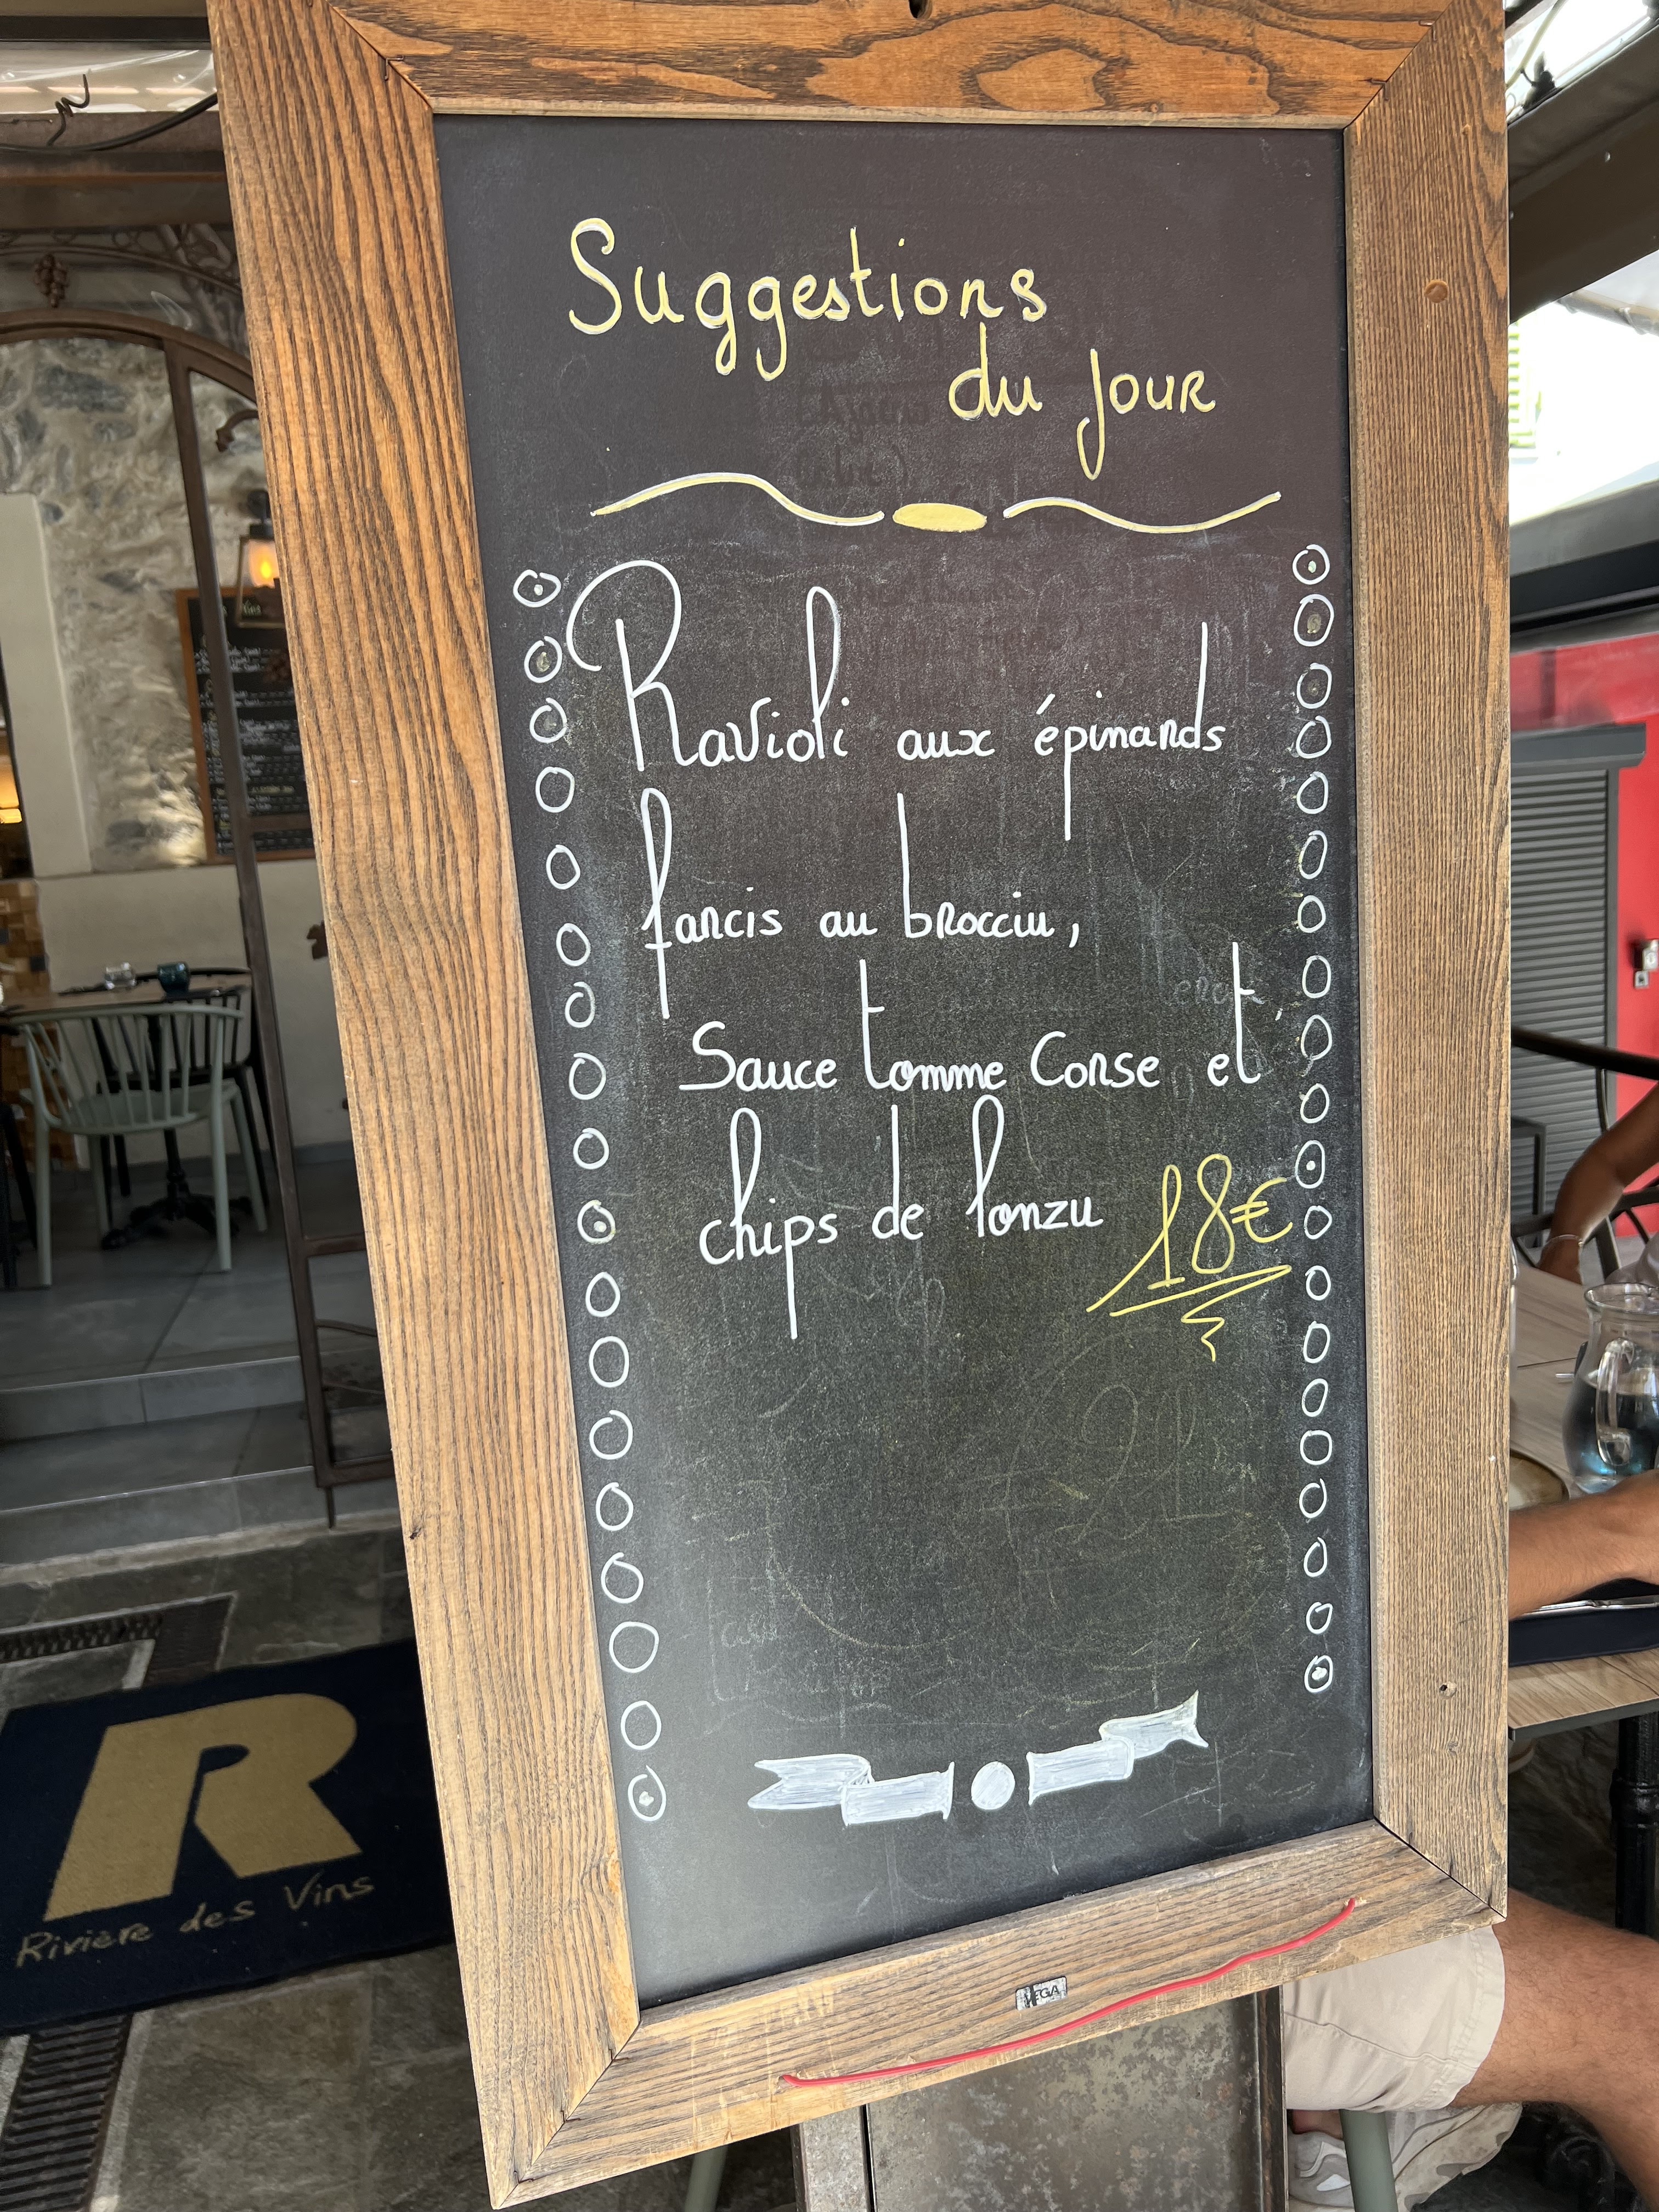 Suggestions
du jour
Ravioli aux épinards
farcis au brocciu,
Sauce tomme Corse et
chips de lonzu 18€
R
Riviere des Vins
VEGA